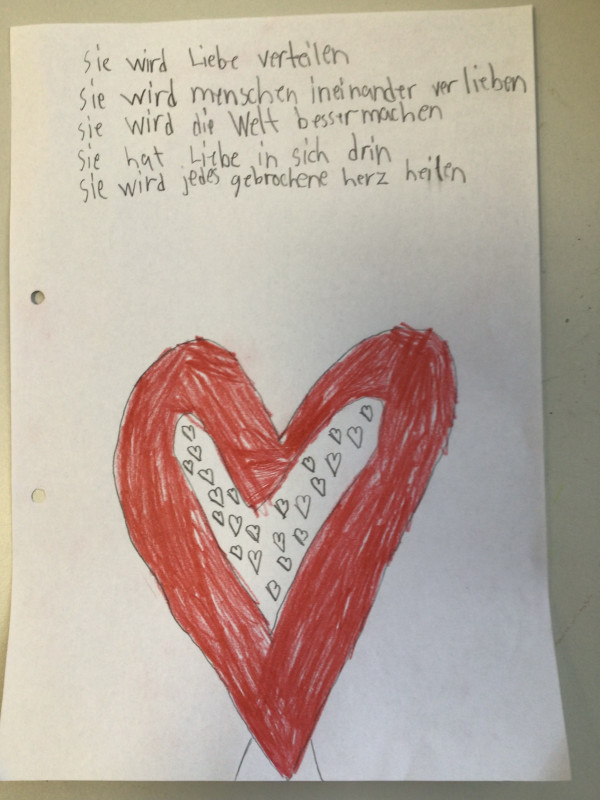 sie wird Liebe verteilen
sie wird menschen ineinander verlieben
sie wird die Welt bessermachen
Sie hat Liebe in sich drin
sie wird jedes gebrochene herz heilen